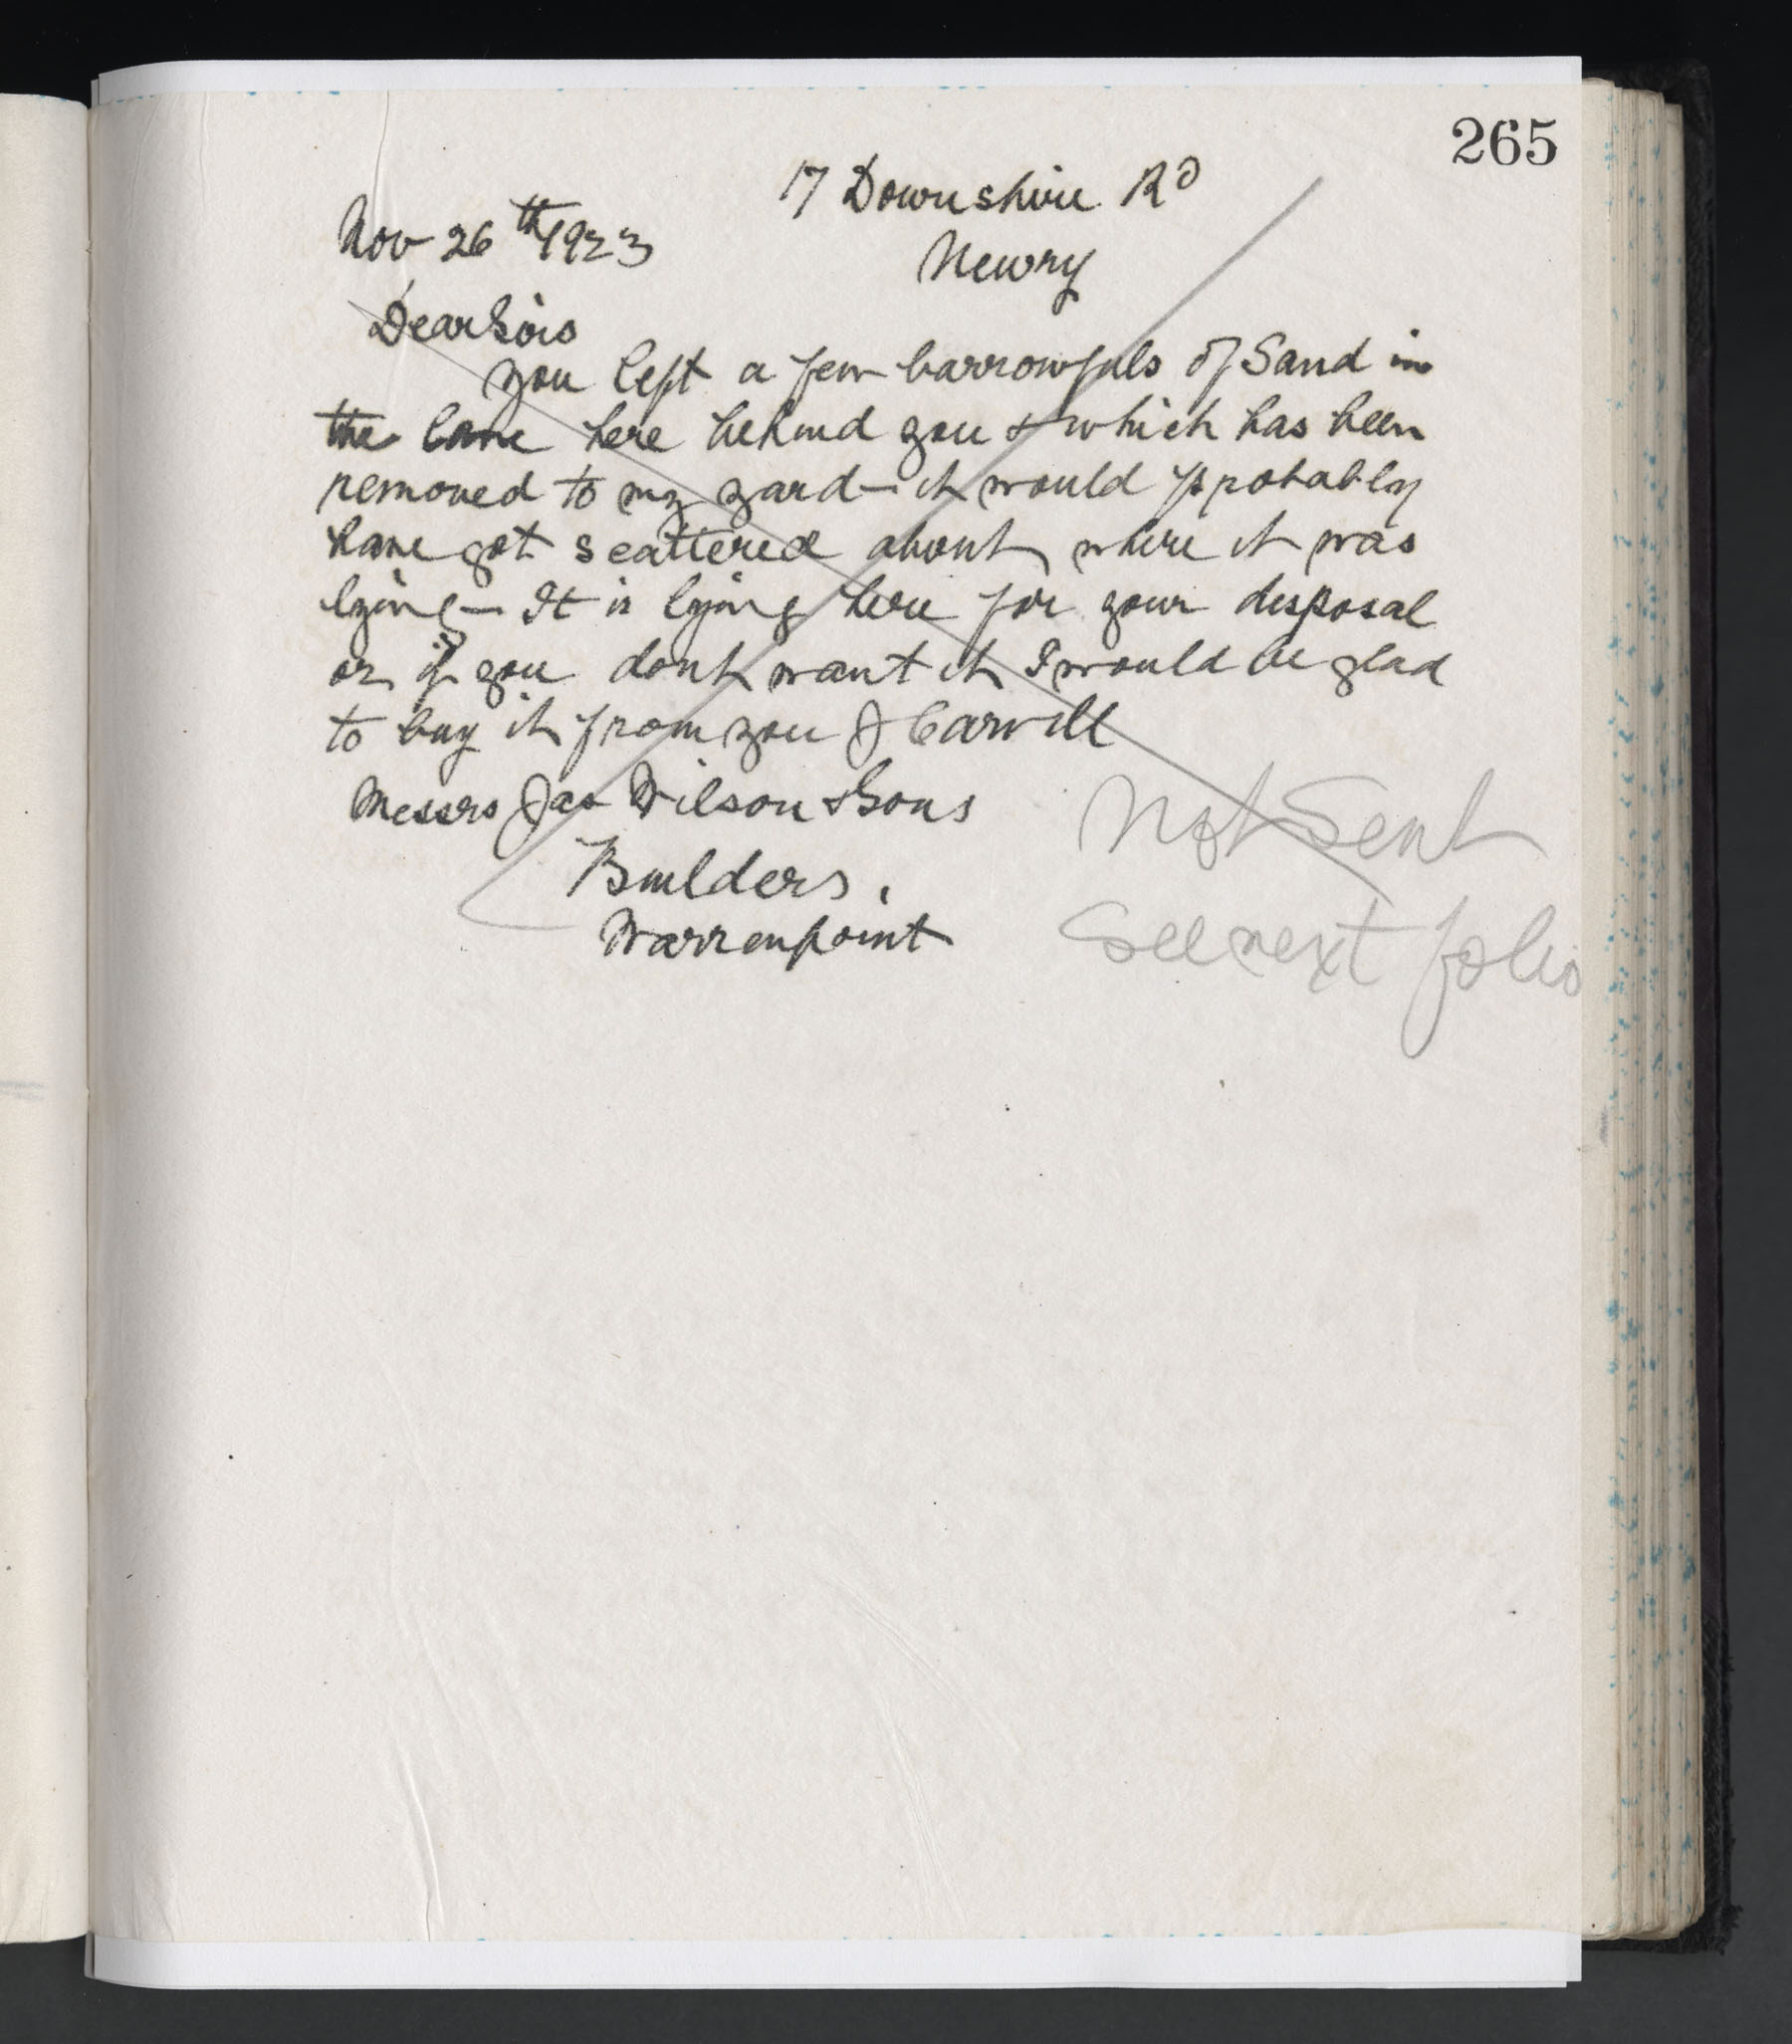 265
17 Downshire Rd
Nov 26th 1923
Newry
Dear Sirs
you left a few barrowfuls of Sand in
the lane here behind you & which has been
removed to my yard - it would probably
have got scattered about where it was
lying - It is lying here for your disposal
or if you dont want it I would be glad
to buy it from you J Carvill
Messrs Jas Wilson & Sons
Builders.
Warrenpoint
Not Sent
See next folio